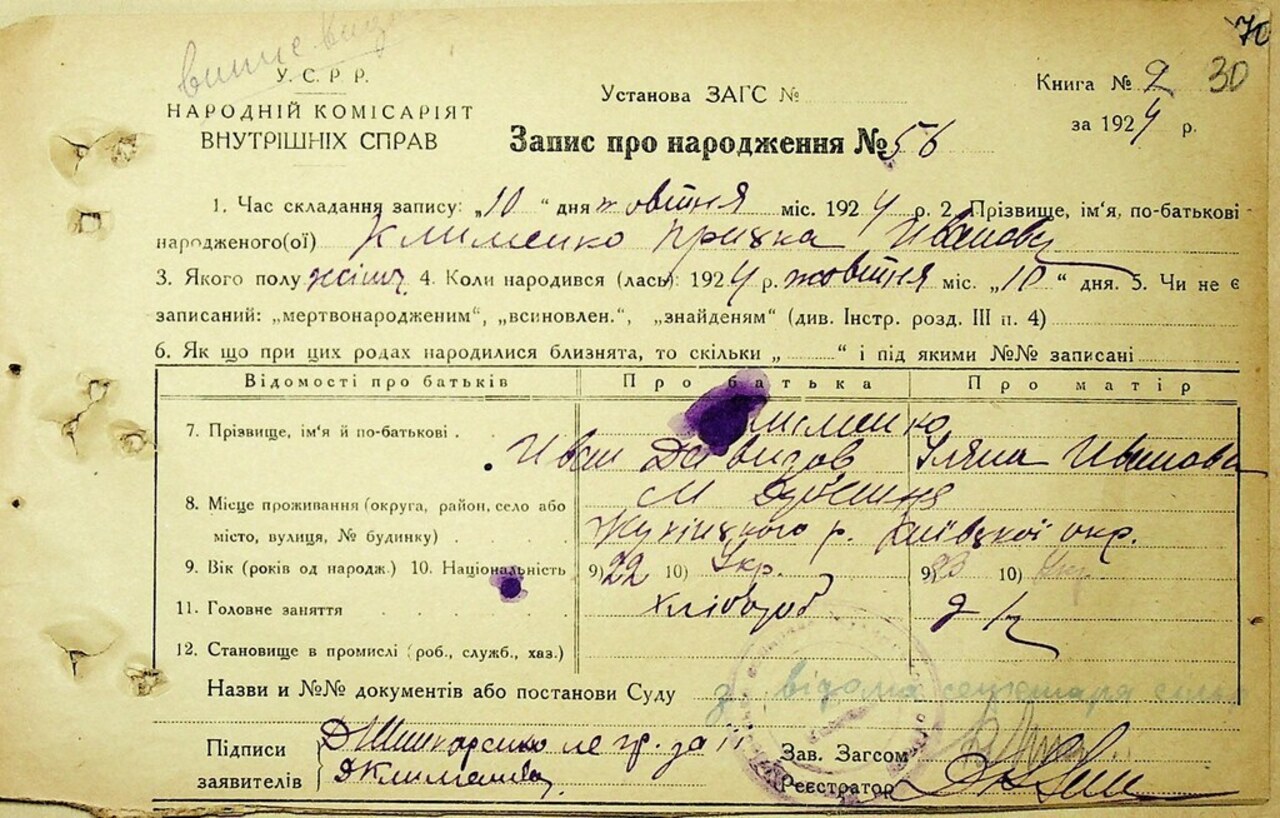 70
У. С. Р. Р.
НАРОДНІЙ КОМІСАРІЯТ
ВНУТРІШНІХ СПРАВ
Установа ЗАГС №
Книга № 2 30
за 1924 р.
Запис про народження № 56
1. Час складання запису: „10“ дня жовтня міс. 1924 р. 2. Прізвище, ім'я, по-батькові
народженого(ої) Клименко Ивановн
3. Якого полу жіно 4. Коли народився (лась): 1924 р. жовтня міс. „10“ дня. 5. Чи не є
записаний: „мертвонародженим“, „всиновлен.“, „знайденям“ (див. Інстр. розд. III п. 4)
6. Як що при цих родах народилися близнята, то скільки „ “ і під якими №№ записані
Відомості про батьків Про батька Про матір
7. Прізвище, ім'я й по-батькові Клименко
Иван Давидов Уляна Иванова
8. Місце проживання (округа, район, село або
місто, вулиця, № будинку) р. Київської окр.
9. Вік (років од народж.) 10. Національність 9) 22 10) Укр. 9) 10) Укр.
11. Головне заняття Хлібороб д/г
12. Становище в промислі (роб., служб., хаз.)
Назви и №№ документів або постанови Суду з відома секретаря
Підписи
заявителів
Зав. Загсом
Реєстратор